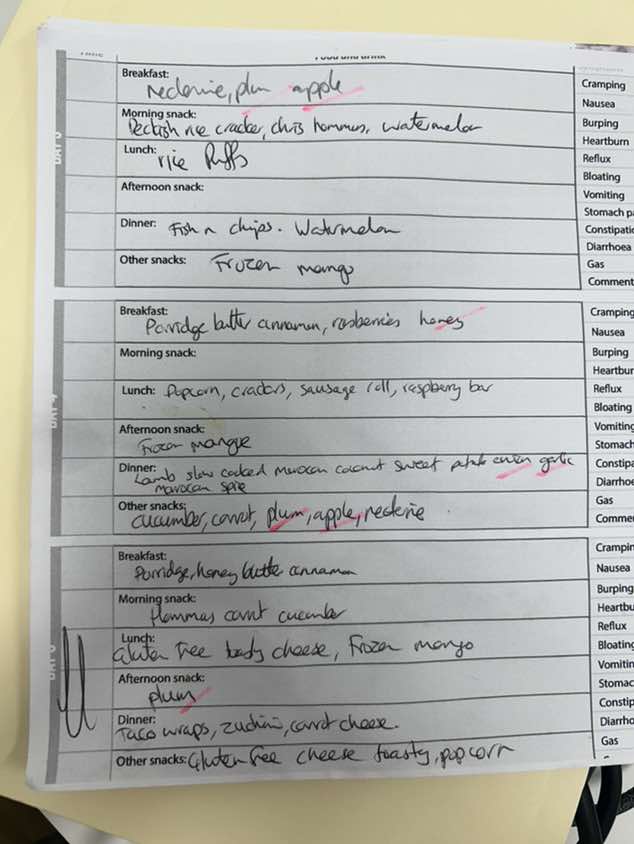 Food and drink
Breakfast:
Necterine, plum apple
Cramping
Nausea
Morning snack:
rice cracker, chris hommus, watermelon
Burping
Heartburn
Lunch: rice Puffs
Reflux
Bloating
Afternoon snack:
Vomiting
Stomach pa
Dinner: Fish n chips. Watermelon
Constipatio
Diarrhoea
Other snacks: Frozen mango
Gas
Comment
Breakfast:
Porridge butter cinnamon, rasberries honey
Cramping
Nausea
Morning snack:
Burping
Heartbur
Lunch: Popcorn, crackers, sausage roll, raspberry bar
Reflux
Bloating
Afternoon snack:
Frozen mangoe
Vomiting
Stomach
Dinner: Lamb slow cooked morocan coconut sweet potato onion garlic
morocan spice
Constipa
Diarrhoe
Other snacks:
cucumber, carrot, plum, apple, necterie
Gas
Comme
Breakfast:
Porridge, honey butter cinnamon
Crampin
Nausea
Morning snack:
Hommus carrot cucumber
Burping
Heartbu
Lunch:
Gluten free cheese, Frozen mango
Reflux
Bloating
Afternoon snack:
plum
Vomitin
Stomac
Dinner:
Taco wraps, zuchini, carrot cheese.
Constip
Diarrho
Other snacks: Gluten free cheese toasty, popcorn
Gas